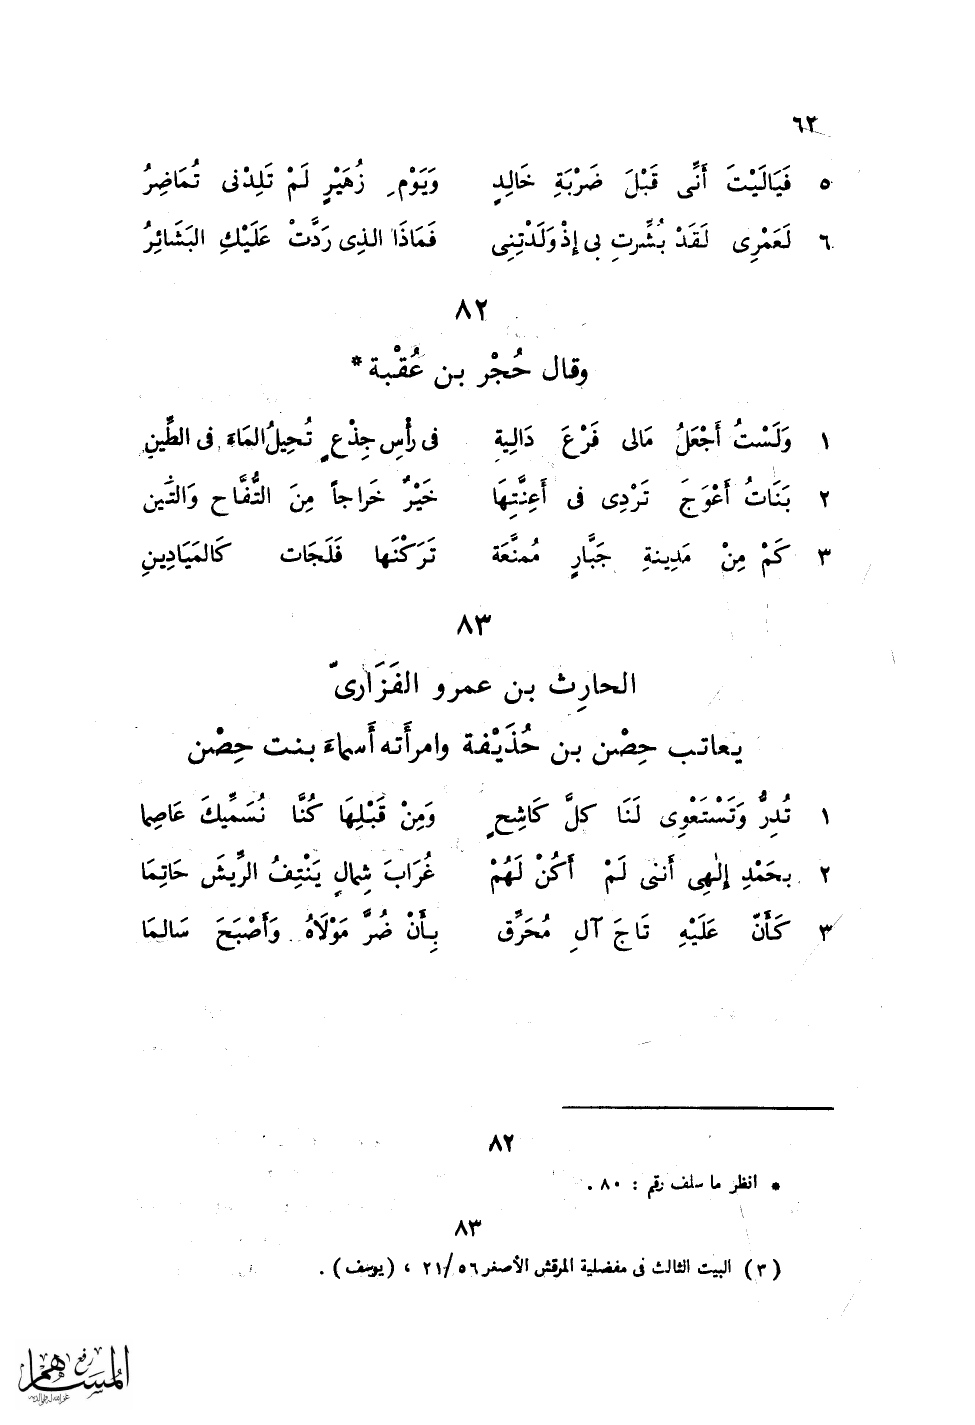 ٦٢
٥ فَيَالَيْتَ أَنِّى قَبْلَ ضَرْبَةِ خَالِدٍ وَيَوْمِ زُهَيْرٍ لَمْ تَلِدْنى تُمَاضِرُ
٦ لَعَمْرِى لَقَدْ بُشِّرتِ بِى إِذْ وَلَدْتِنِى فَمَاذَا الذِى رَدَّتْ عَلَيْكِ البَشَائِرُ
٨٢
وقال حُجْر بن عُقْبة *
١ وَلَسْتُ أَجْعَلُ مَالى فَرْعَ دَالِيةٍ فى رأْسِ جِذْعٍ تُحِيلُ المَاءَ فى الطِّينِ
٢ بَنَاتُ أَعْوَجَ تَرْدِى فى أَعِنَّتِهَا خَيْرٌ خَراجاً مِنَ التُّفَّاحِ وَالتِّينِ
٣ كَمْ مِنْ مَدِينةِ جَبَّارٍ مُمنَّعَة تَرَكْنَها فَلَجَات كَالمَيَادِينِ
٨٣
الحارِث بن عمرو الفَزَارىّ
يعاتب حِصْن بن حُذَيْفة وامرأَته أَسماءَ بنت حِصْن
١ تُدِرُّ وَتَسْتَعْوِى لَنَا كلَّ كَاشِحٍ وَمِنْ قَبْلِهَا كُنَّا نُسَمِّيكَ عَاصِما
٢ بِحَمْدِ إِلٰهِى أَننى لَمْ أَكُنْ لَهُمْ غُرَابَ شِمالٍ يَنْتِفُ الرِّيشَ حَاتِمَا
٣ كَأَنّ عَلَيْهِ تَاجَ آلِ مُحَرِّق بِأَنْ ضُرَّ مَوْلَاهُ وَأَصْبَحَ سَالمَا
٨٢
* انظر ما سلف رقم : ٨٠ .
٨٣
( ٣ ) البيت الثالث فى مفضلية المرقش الأصغر ٥٦ / ٢١ ، ( يوسف ) .
رفع
المساهم
غفر الله له ولوالديه